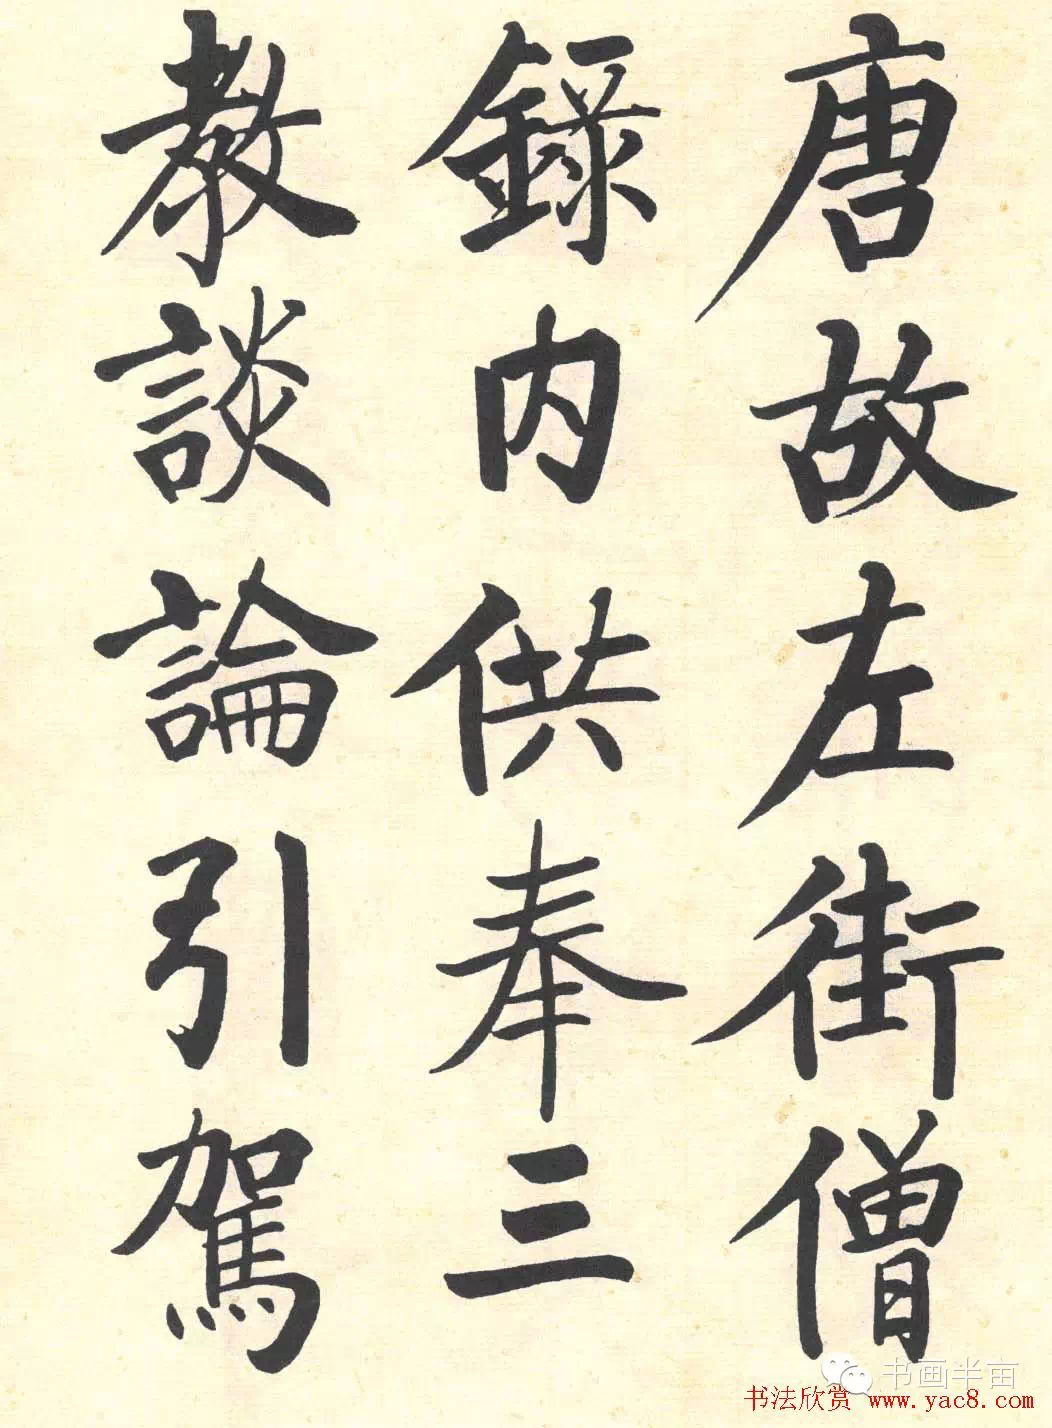 唐故左街僧
錄内供奉三
教談論引駕
书画半亩
书法欣赏 www.yac8.com